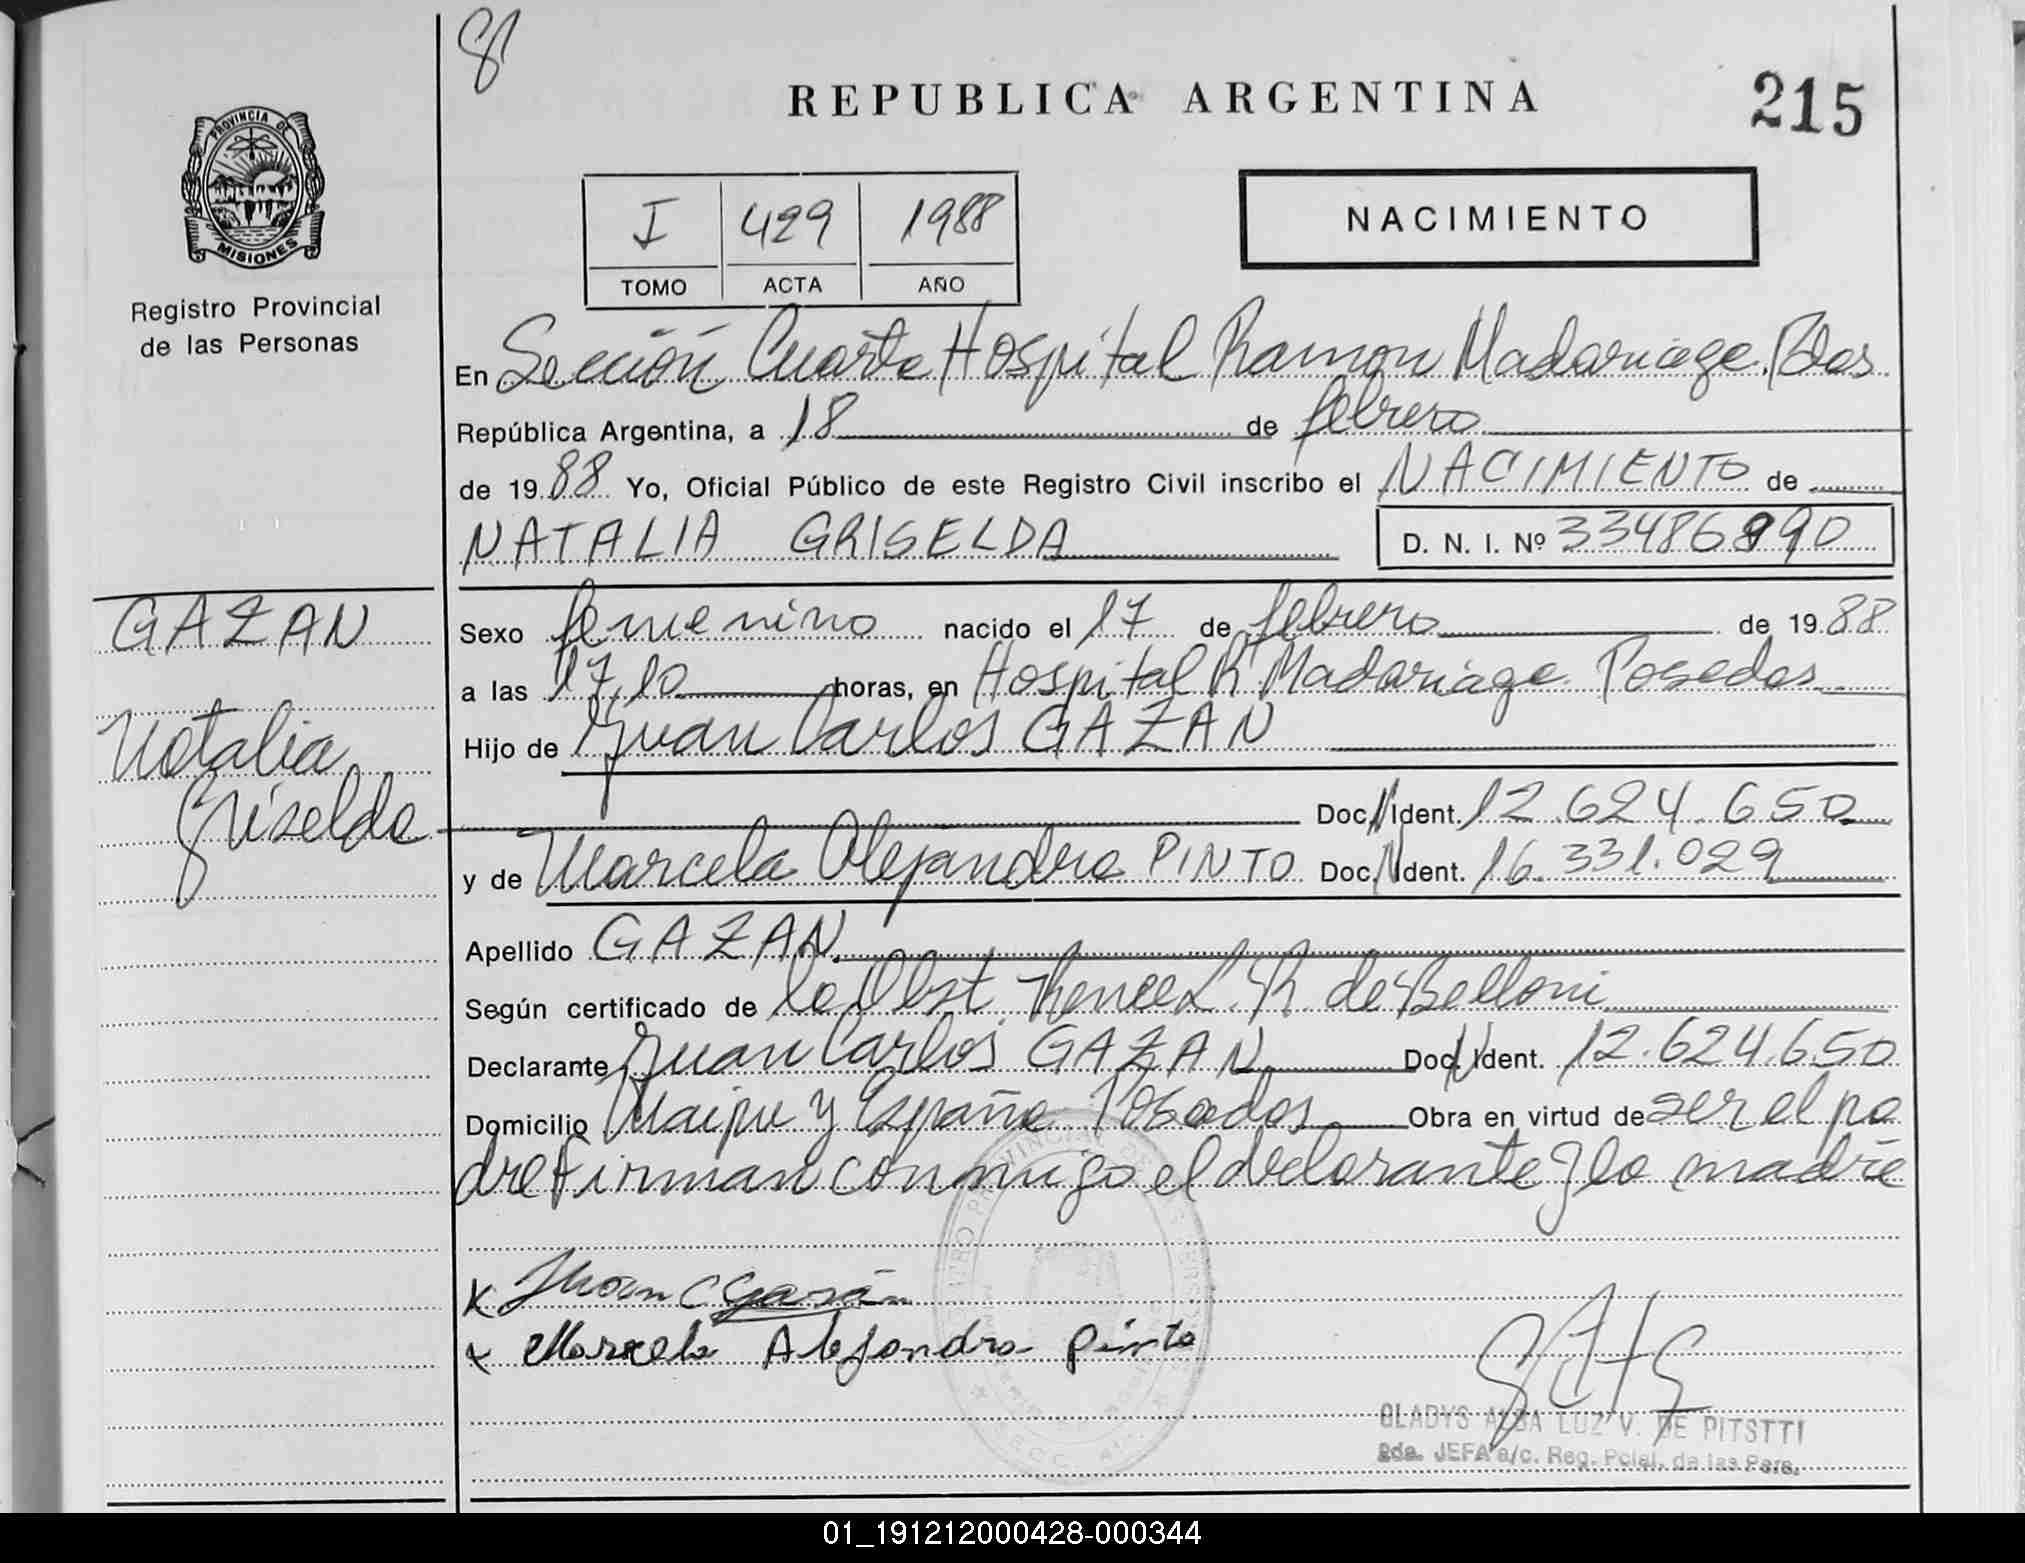 8
REPUBLICA ARGENTINA
215
PROVINCIA DE
MISIONES
Registro Provincial
de las Personas
I 429 1988
TOMO ACTA AÑO
NACIMIENTO
En Sección Cuarta Hospital Ramon Madariaga. Pdas
República Argentina, a 18 de febrero
de 1988 Yo, Oficial Público de este Registro Civil inscribo el NACIMIENTO de
NATALIA GRISELDA D. N. I. Nº 33486990
GAZAN
Natalia
Griselda
Sexo femenino nacido el 17 de febrero de 1988
a las 17,10 horas, en Hospital R. Madariaga. Posadas
Hijo de Juan Carlos GAZAN
Doc. N Ident. 12.624.650
y de Marcela Alejandra PINTO Doc. N Ident. 16.331.029
Apellido GAZAN
Según certificado de la Obst. Renee L. R. de Belloni
Declarante Juan Carlos GAZAN Doc. N Ident. 12.624.650
Domicilio Maipu y España Posadas Obra en virtud de ser el pa
dre Firman conmigo el declarante y la madre
x Juan C Gazán
x Marcela Alejandra Pinto
GLADYS ALBA LUZ V. DE PITSTTI
2da. JEFA a/c. Reg. Pcial. de las Pers.
01_191212000428-000344